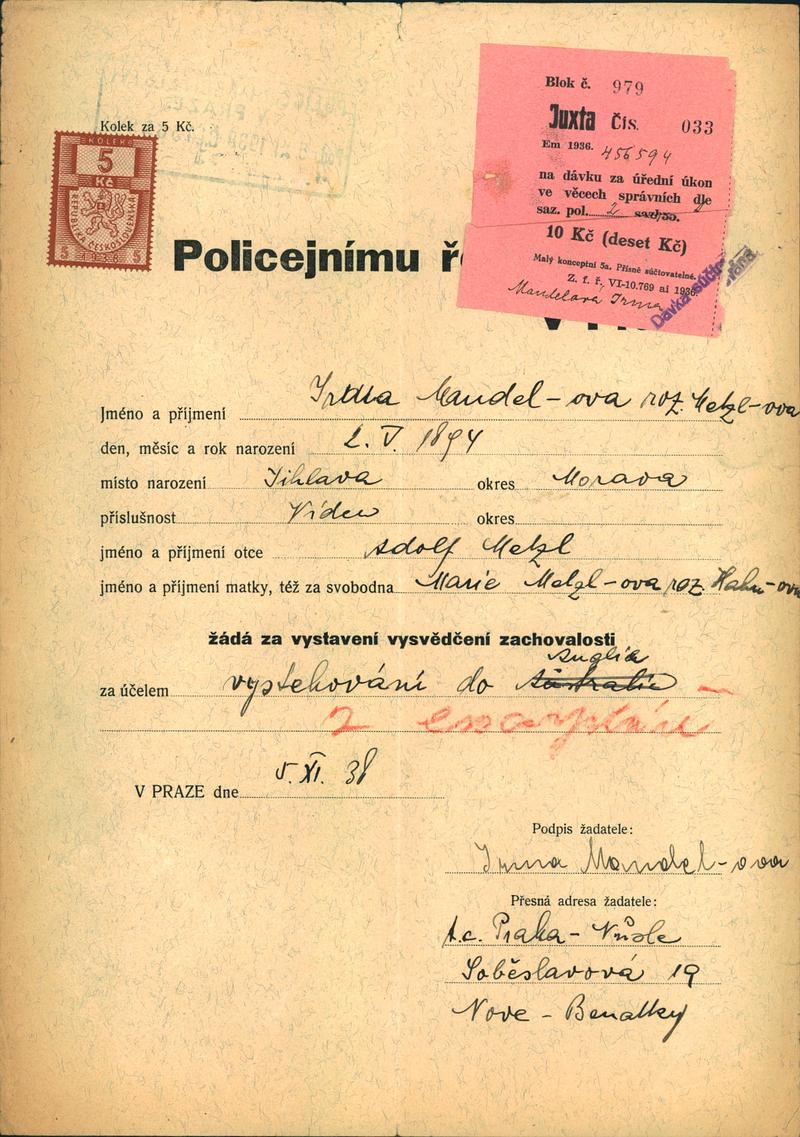 Kolek za 5 Kč.
KOLEK
5
Kč
REPUBLIKA ČESKOSLOVENSKÁ
5 1938 5
Blok č. 979
Juxta Čís. 033
Em 1936. 456594
na dávku za úřední úkon
ve věcech správních dle
saz. pol. 2
10 Kč (deset Kč)
Malý konceptní 5a. Přísně súčtovatelné.
Z. f. ř. VI-10.769 ai 1936
Mandelová Irma
Dávka súčtována
Policejnímu ř
Jméno a příjmení Irma Mandel-ova roz. Metzl-ova
den, měsíc a rok narození 2. V. 1894
místo narození Jihlava okres Morava
příslušnost Víden okres
jméno a příjmení otce Adolf Metzl
jméno a příjmení matky, též za svobodna Marie Metzl-ova roz. Hahn-ova
žádá za vystavení vysvědčení zachovalosti
Anglie
za účelem vystehování do Australie
2
V PRAZE dne 5. XI. 38
Podpis žadatele:
Irma Mandel-ova
Přesná adresa žadatele:
t.c. Praha-Nůsle
Soběslavová 19
Nove-Benatky